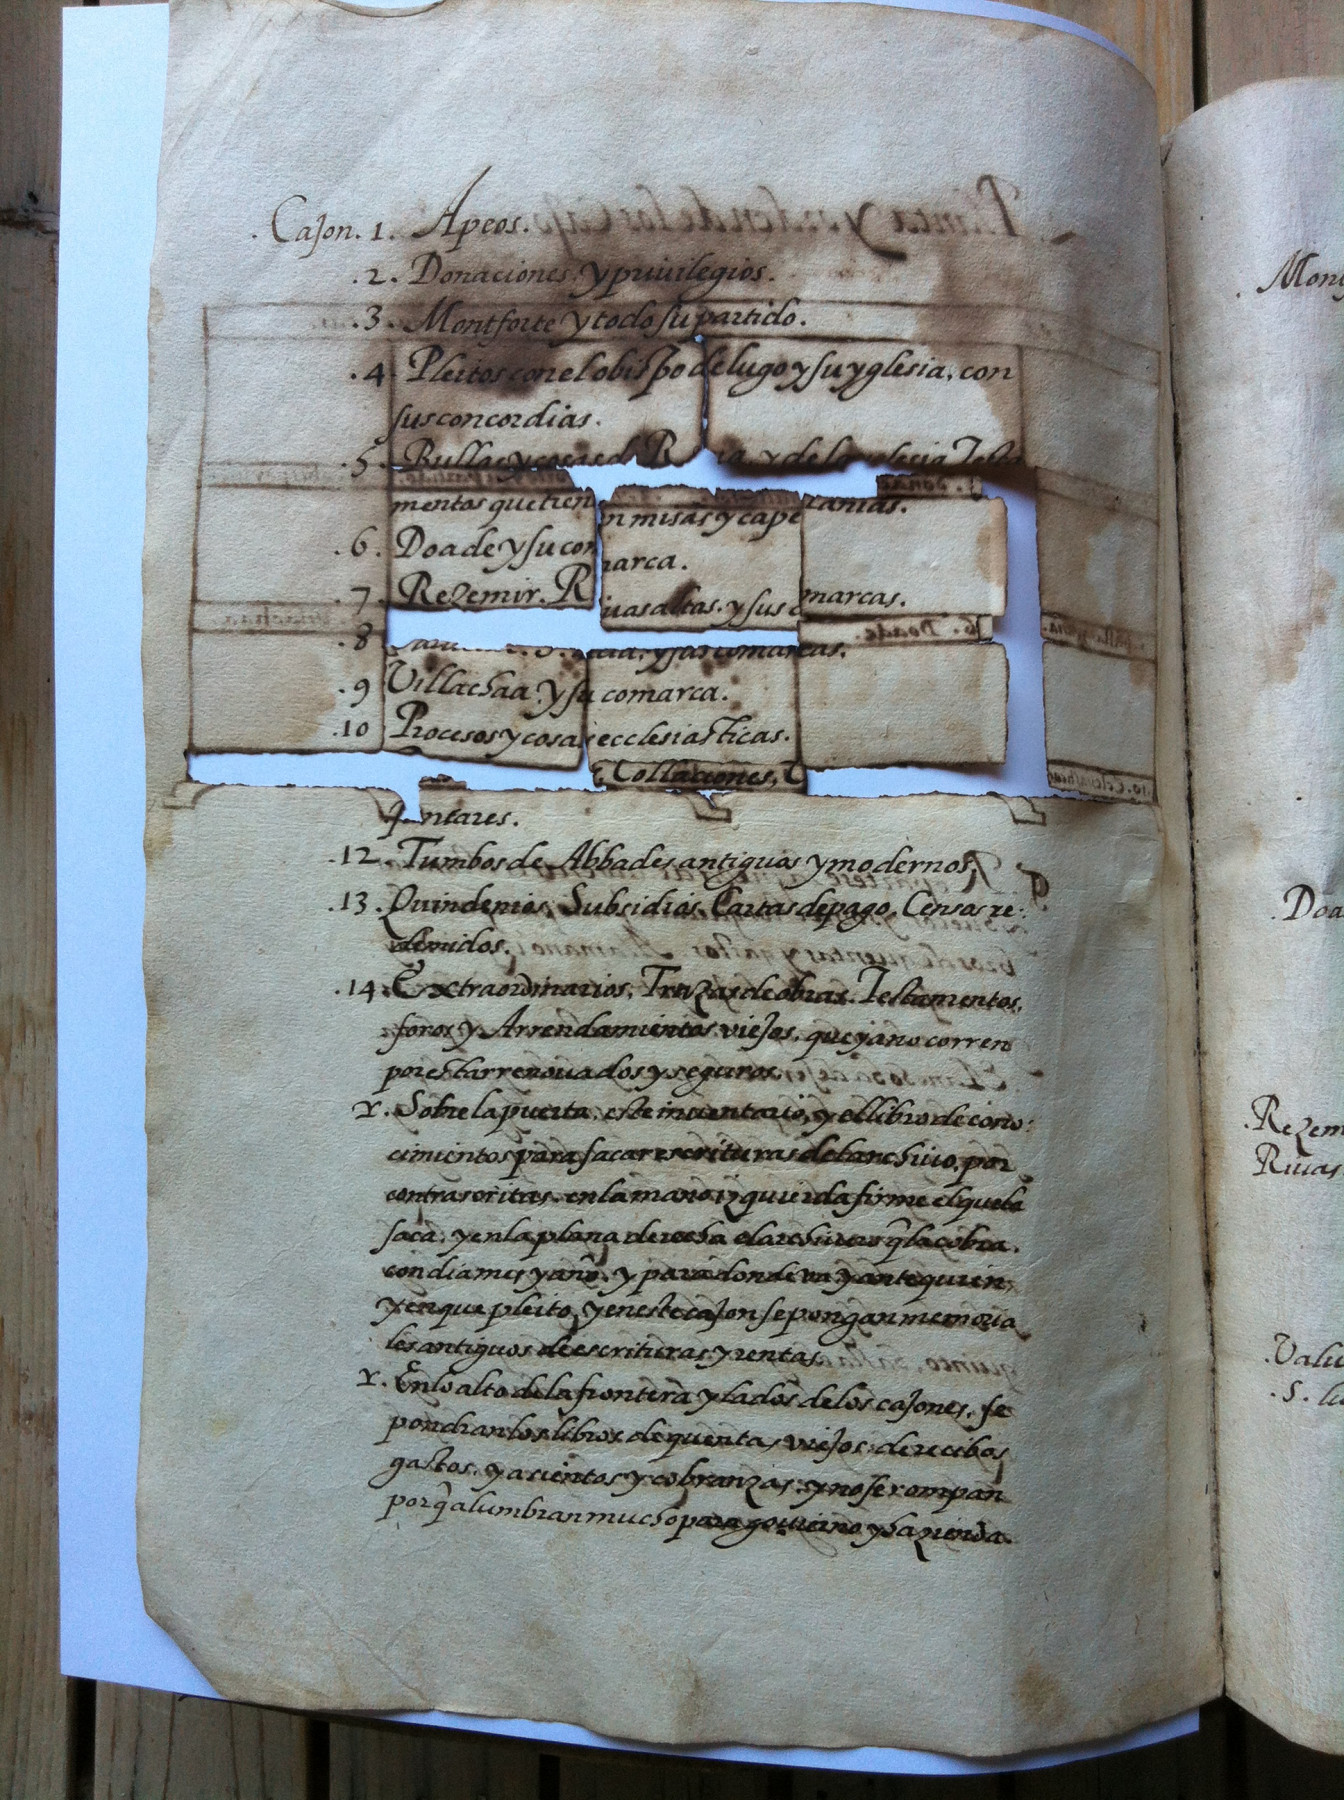 .Cajon. 1. Apeos.
.2. Donaciones. y priuilegios.
.3. Montforte y todo su partido.
.4 Pleitos con el obispo de lugo y su yglesia, con
sus concordias.
.5. Bullas y cosas de R y de la yglesia Testa
mentos que tienen misas y capellanias.
.6. Doade y su comarca.
.7. Rezemir. Riuas altas. y sus comarcas.
.8 y sus comarcas.
.9 Villachaa. y su comarca.
.10 Procesos y cosas ecclesiasticas.
Collaciones,
yantares.
.12. Tumbos de Abbades antiguos y modernos.
.13. Quindenios, Subsidios, Cartas de pago, Censos re:
demidos.
.14. Extraordinarios, Trazas de obras. Testamentos,
foros y Arrendamientos viejos, que ya no corren
por estar renouados y seguros.
r. Sobre la puerta, este inuentario, y el libro de cono:
cimientos para sacar escrituras del archiuo, por
contrascritas, en la mano izquierda firme el que la
saca, y en la plana derecha el archiuero q̃ la cobra.
con dia mes y año. y para donde va y ante quien,
y en que pleito, y en este cajon se pongan memoria
les antiguos de escrituras y rentas.
r. En lo alto de la frontera y lados de los cajones, se
pondran los libros de quentas viejos, de recibos
gastos, y asientos y cobranzas: y no se rompan
porq̃ alumbran mucho para gouierno y hazienda.
Doa
Rezem
Riuas
.Valu
.S. lu